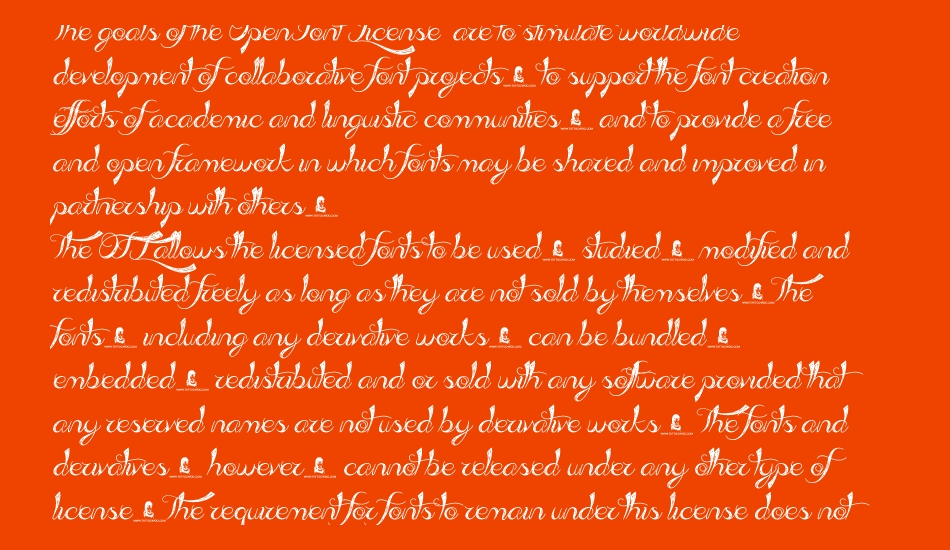 The goals of the Open Font License are to stimulate worldwide
development of collaborative font projects to support the font creation
efforts of academic and linguistic communities and to provide a free
and open framework in which fonts may be shared and improved in
partnership with others
The OFL allows the licensed fonts to be used studied modified and
redistributed freely as long as they are not sold by themselves The
fonts including any derivative works can be bundled
embedded redistributed and or sold with any software provided that
any reserved names are not used by derivative works The fonts and
derivatives however cannot be released under any other type of
license The requirement for fonts to remain under this license does not